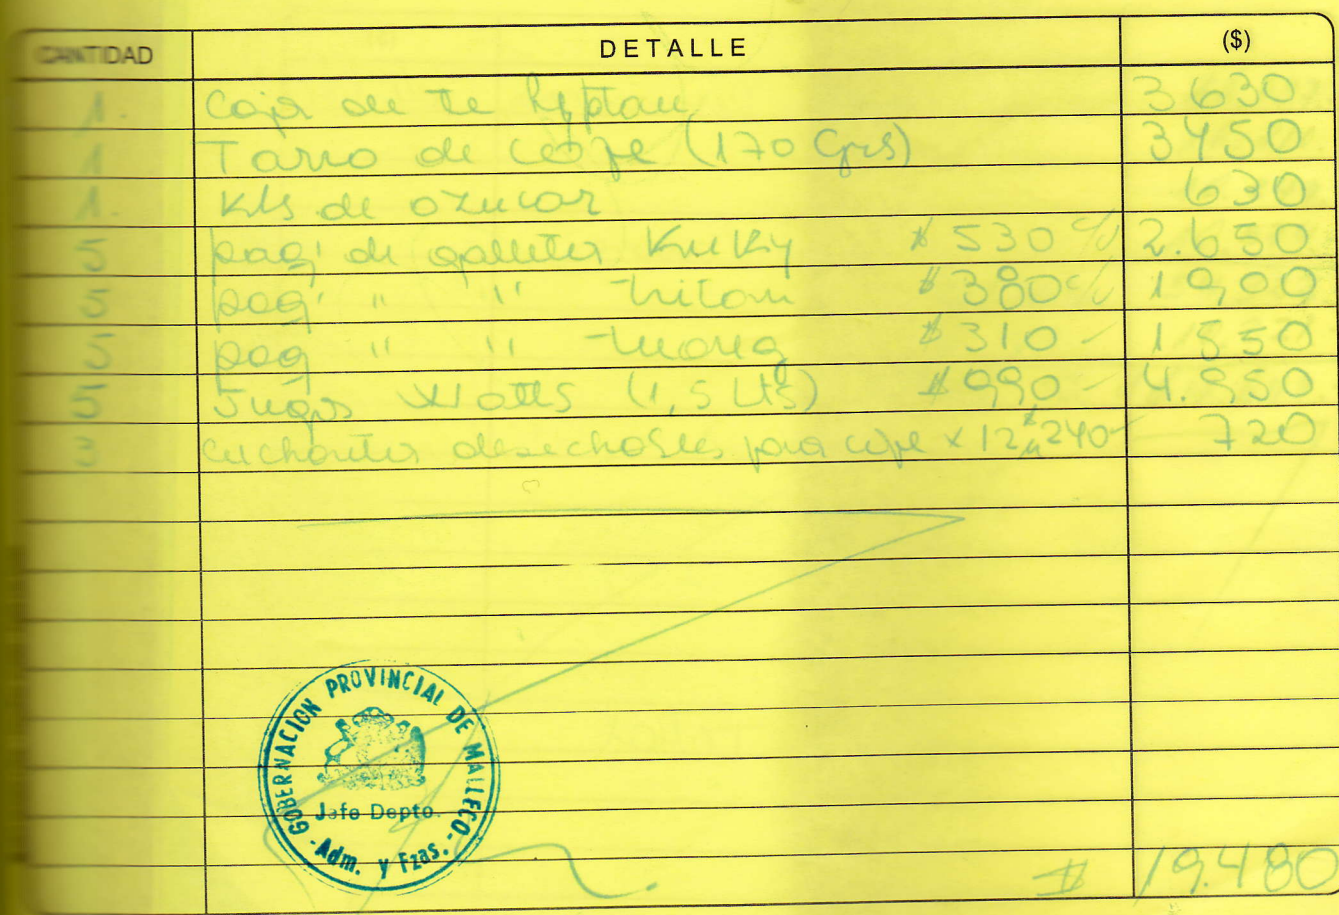 CANTIDAD DETALLE ($)
1. Caja de te Lyptau 3630
1 Tarro de cafe (170 Grs) 3450
1. Kls de azucar 630
5 paq. de galletas KuKy $ 530 c/u 2.650
5 paq. " " triton $ 380 c/u 1900
5 paq " " $ 310 - 1550
5 Jugos Watts (1,5 Lts) $ 990 - 4.950
3 cucharitas desechables para cafe x 12 $ 240- 720
GOBERNACION PROVINCIAL DE MALLECO
Jefe Depto.
- Adm. y Fzas. -
$ 19.480